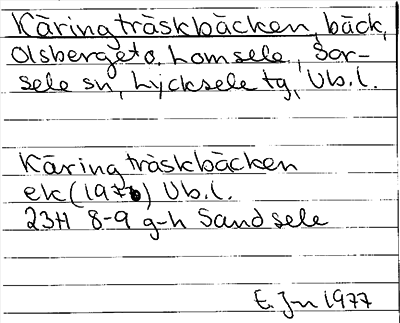 Käringträskbäcken, bäck,
Olsberget o. Lomsele, Sor-
sele sn, Lycksele tg, Vb.l.
Käringträskbäcken
ek (1970) Vb.l.
23H 8-9 g-h Sandsele
E. Jn 1977